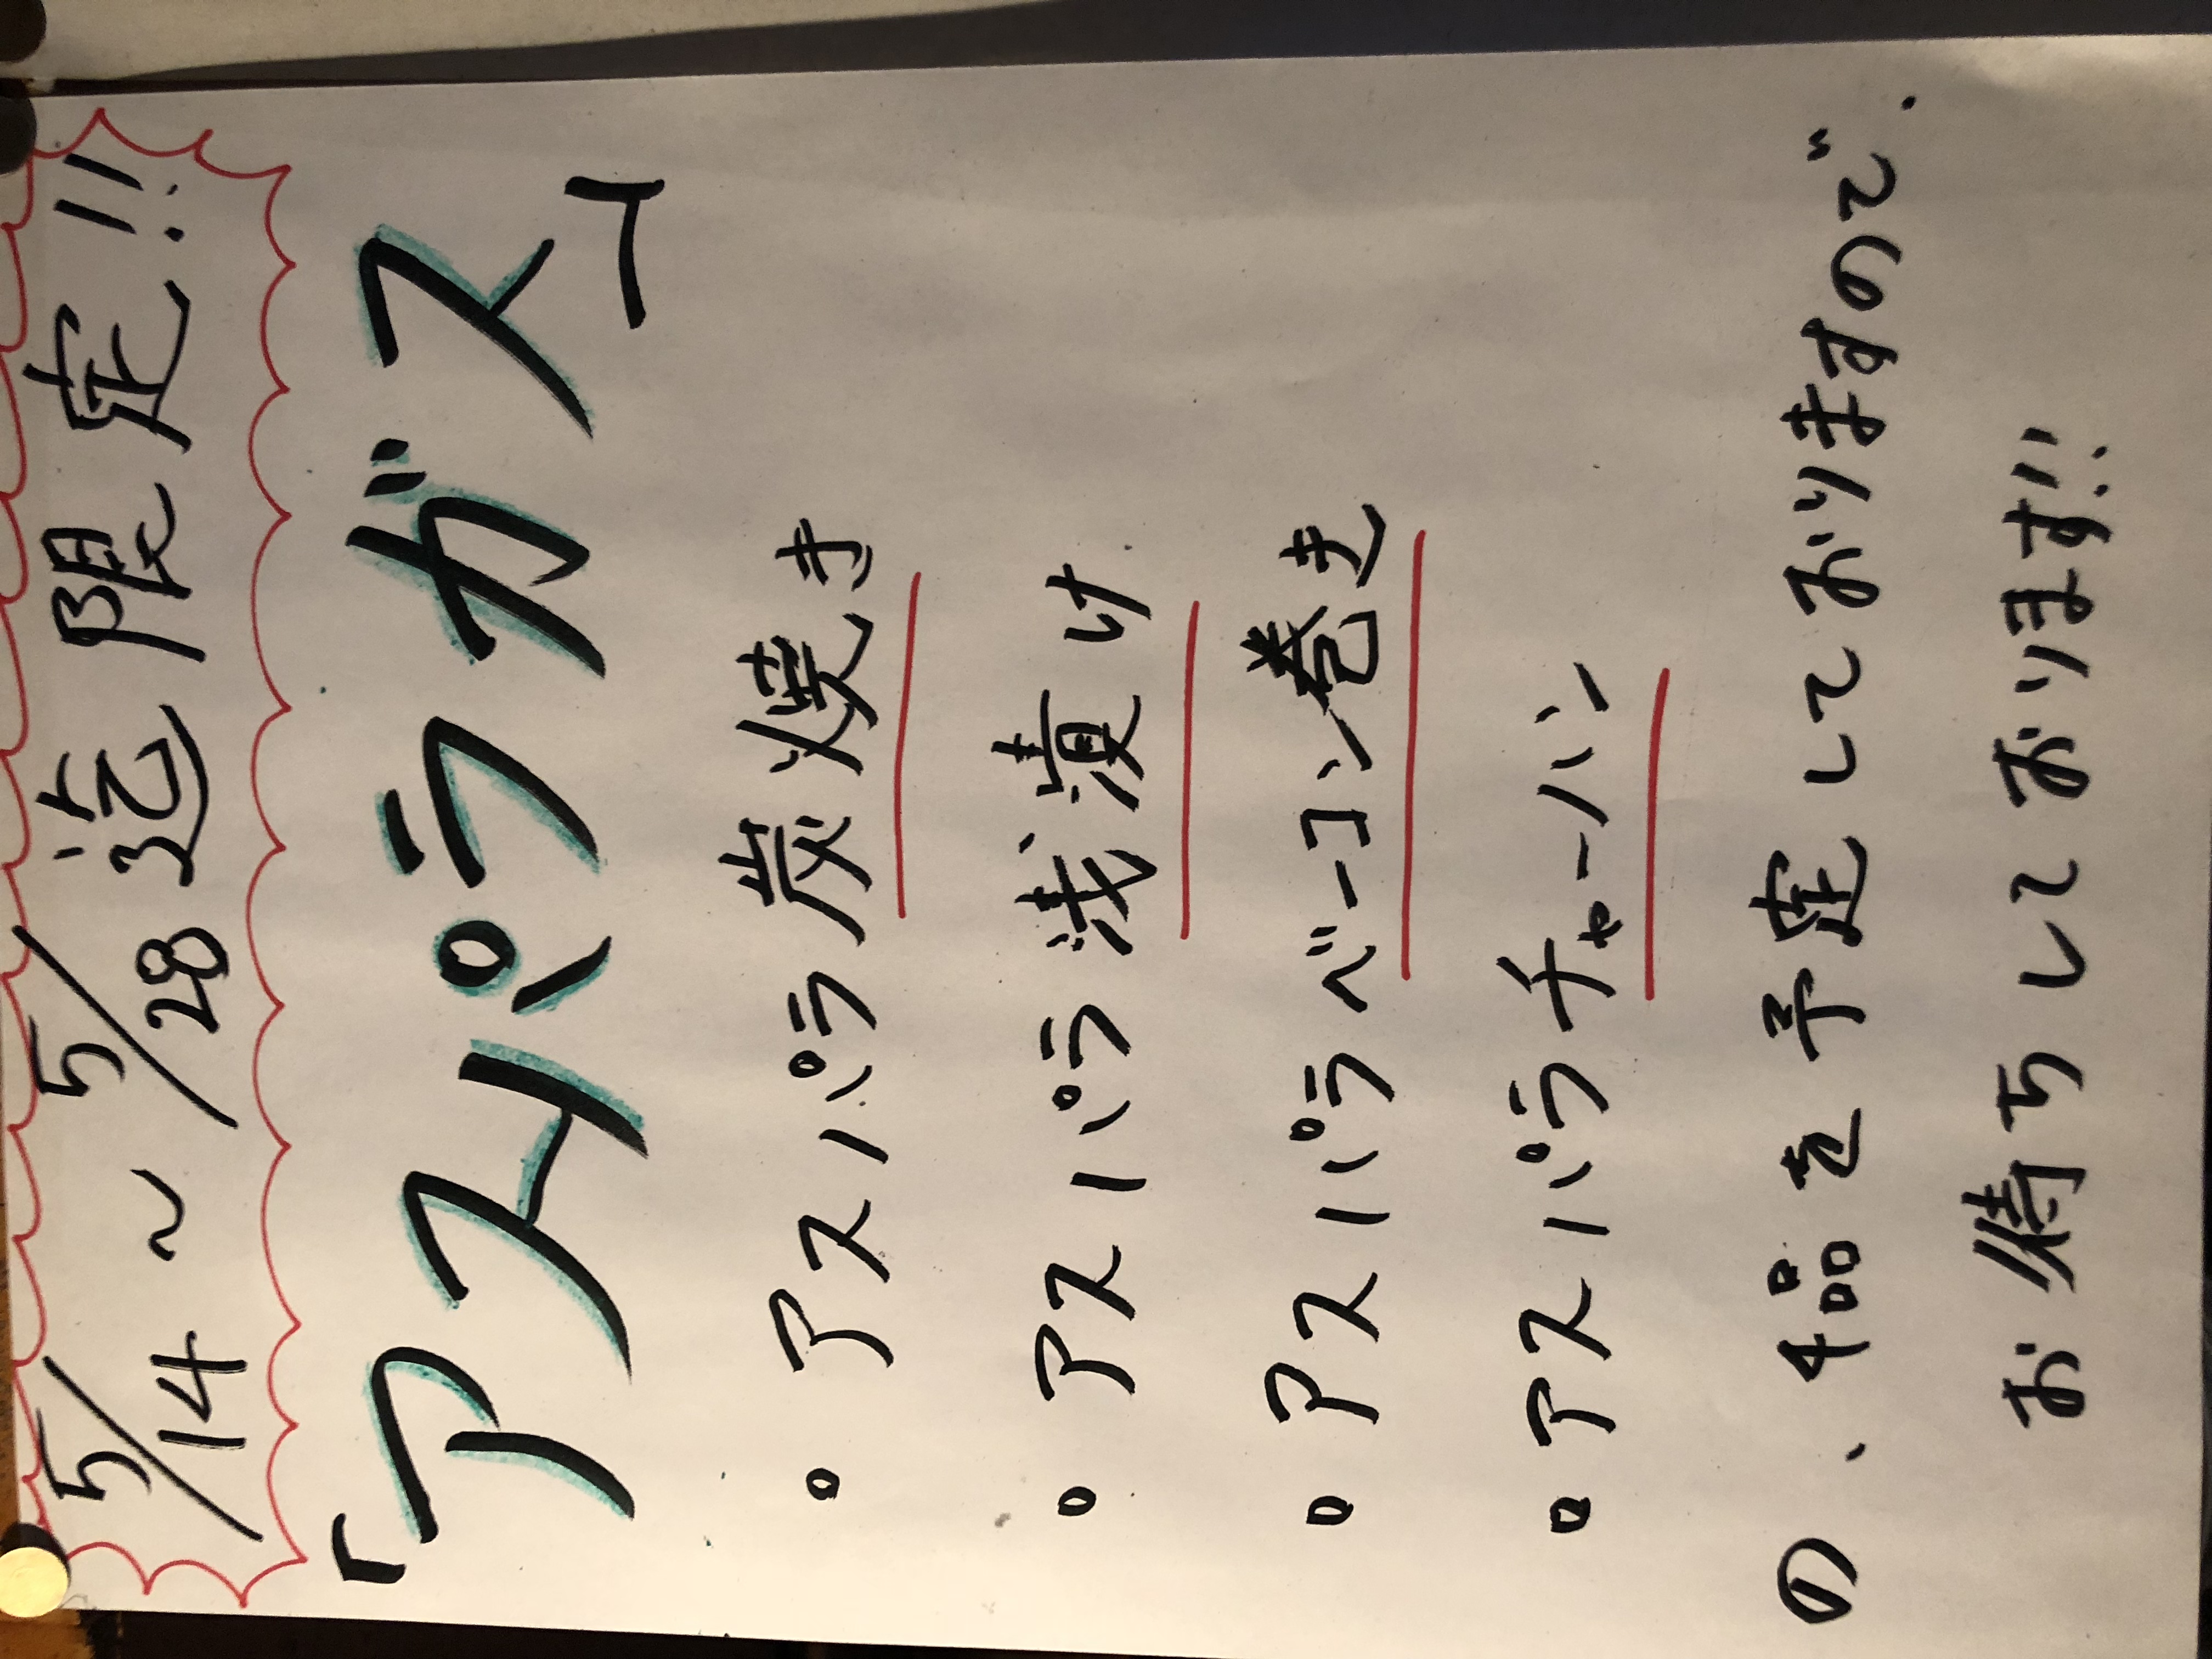 5/14 ~ 5/28迄限定!!
「アスパラガス」
。アスパラ炭焼き
。アスパラ浅漬け
。アスパラベーコン巻き
。アスパラチャーハン
の、4品を予定しておりますので、
お待ちしております!!